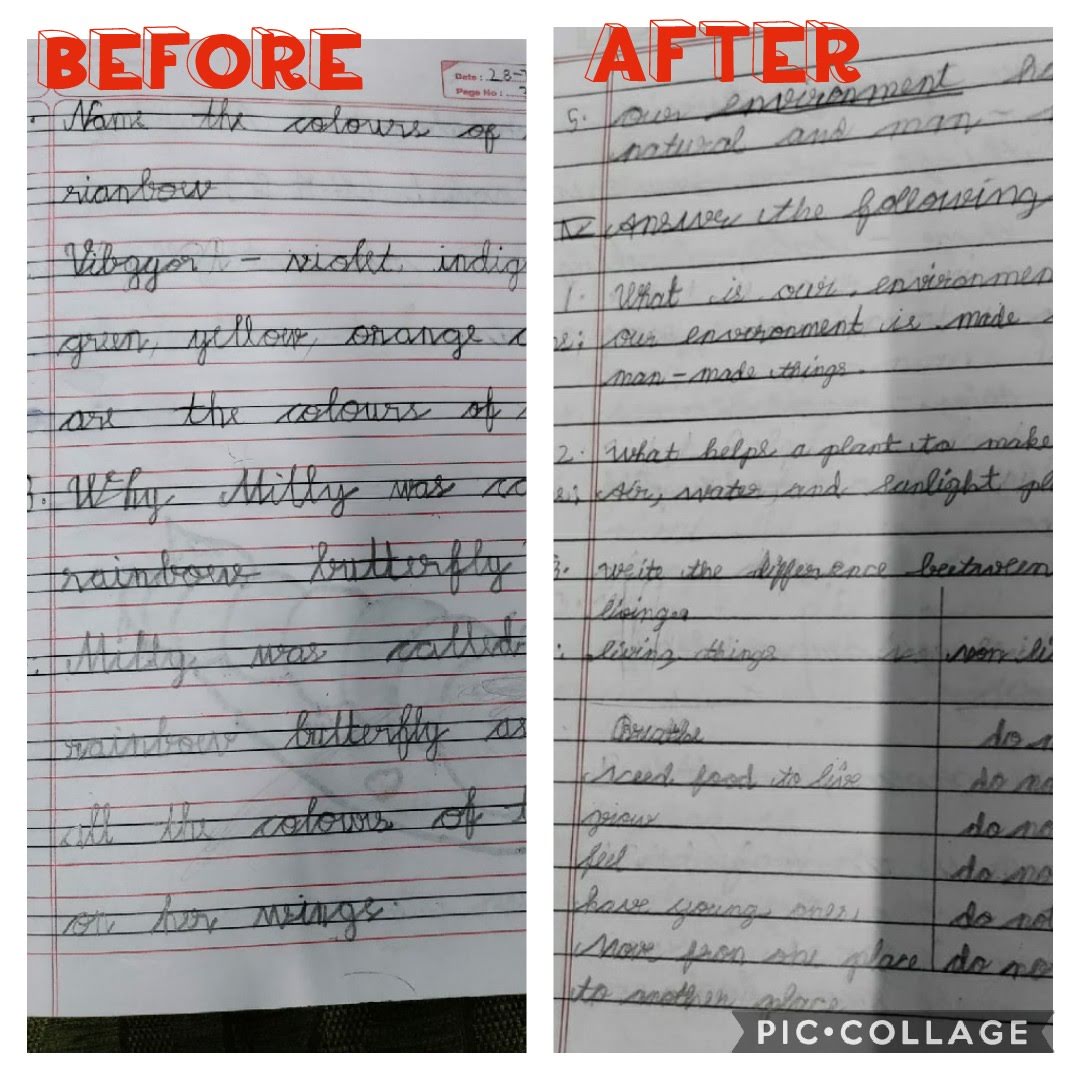 BEFORE
Date : 28-
Page No :
Name the colours of
rianbow
Vibgyor - violet, indig
green, yellow, orange
are the colours of
3. Why Mitty was co
rainbow butterfly
Mitty was called
rainbow butterfly as
all the colours of t
on her wings.
AFTER
5. our environment ha
natural and man-
IV Answer the following
1. What is our environmen
our environment is made
man-made things.
2. What helps a plant to make
Air, water and sunlight
3. write the difference beetween
living
living things non li
Breathe do n
Need food to live do no
grow do no
feel do no
have young ones, do not
Move from one place do no
to another place
PIC•COLLAGE